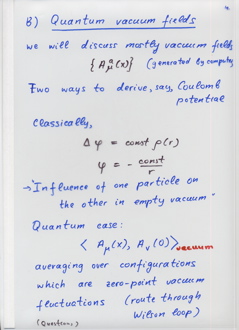 B) Quantum vacuum fields
we will discuss mostly vacuum fields
{A_μ^a(x)} (generated by computer
Two ways to derive, say, Coulomb
potential
Classically,
Δφ = const ρ(r)
φ = - const/r
→ "Influence of one particle on
the other in empty vacuum"
Quantum case:
< A_μ(x), A_ν(0) >vacuum
averaging over configurations
which are zero-point vacuum
fluctuations (route through
Wilson loop)